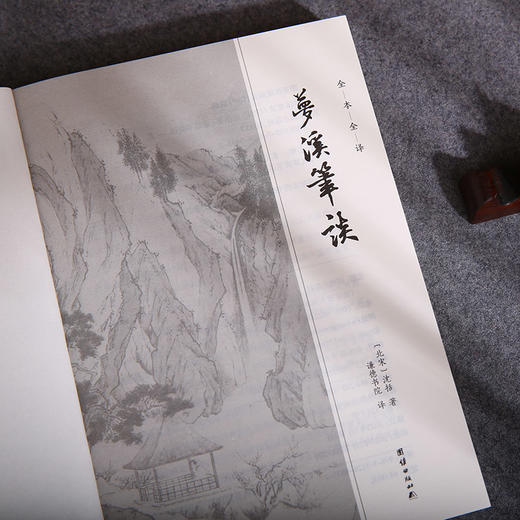 全本全译
梦溪笔谈
[北宋]沈括 著
谦德书院 译
团结出版社